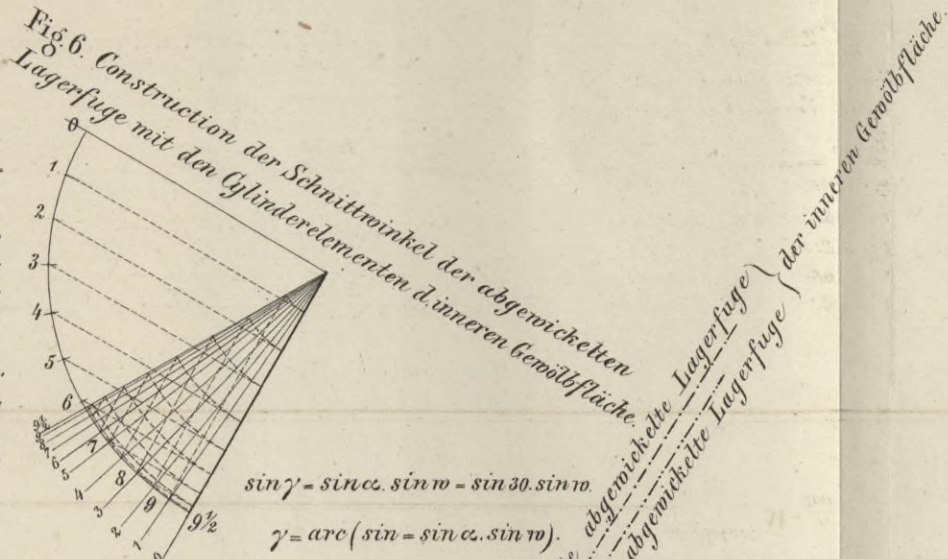 Fig. 6. Construction der Schnittwinkel der abgewickelten
Lagerfuge mit den Cylinderelementen d. inneren Gewölbfläche.
0
1
2
3
4
5
6
7
8
9
9½
9½
7
6
5
4
3
2
1
0
sin γ = sin α. sin w = sin 30. sin w.
γ = arc (sin = sin α. sin w).
abgewickelte Lagerfuge
abgewickelte Lagerfuge
der inneren Gewölbfläche.